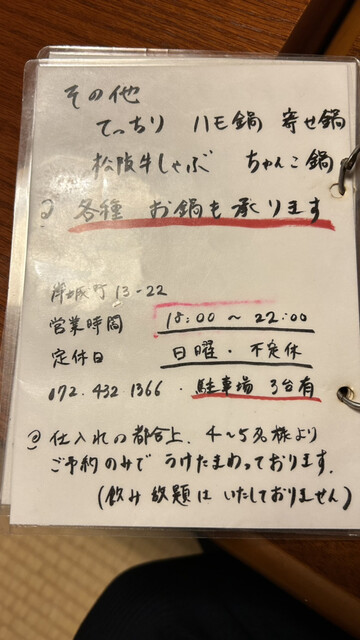 その他
てっちり ハモ鍋 寄せ鍋
松阪牛しゃぶ ちゃんこ鍋
各種 お鍋も承ります
岸城町13-22
営業時間 18:00〜22:00
定休日 日曜・不定休
072.432.1366 ・駐車場 3台有
仕入れの都合上、4〜5名様より
ご予約のみで うけたまわっております。
(飲み放題は いたしておりません)